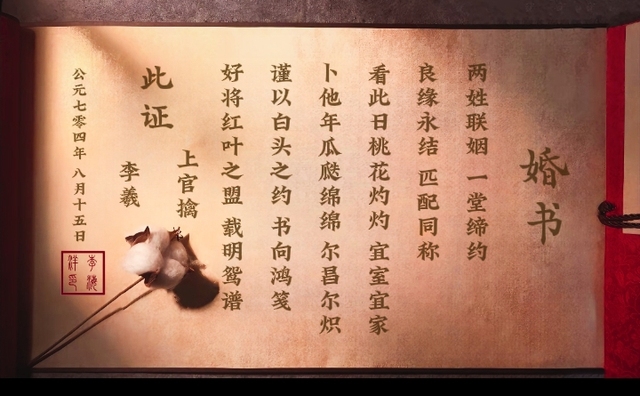 婚书
两姓联姻 一堂缔约
良缘永结 匹配同称
看此日桃花灼灼 宜室宜家
卜他年瓜瓞绵绵 尔昌尔炽
谨以白头之约 书向鸿笺
好将红叶之盟 载明鸳谱
上官擒
此证
李羲
公元七零四年 八月十五日